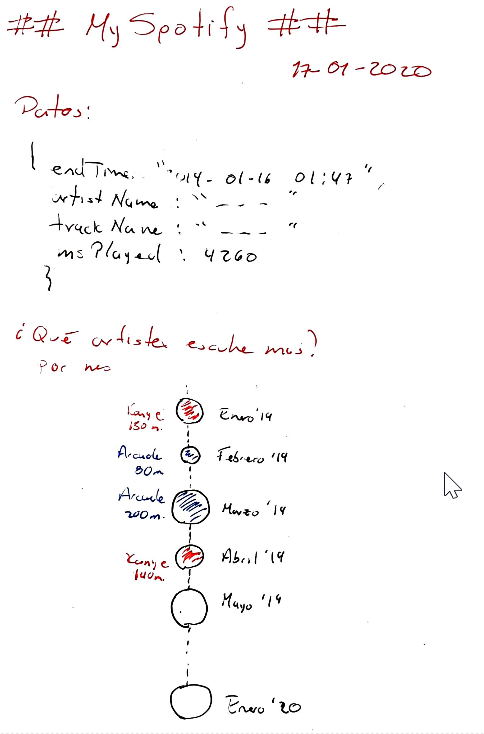 ## My Spotify ##
17-01-2020
Datos:
{
endTime: "2019-01-16 01:47",
artist Name : " --- "
track Name : " --- "
ms Played : 4260
}
¿Qué artistas escuche mas?
Por mes
Kanye 150 m. Enero '19
Arcade 80m Febrero '19
Arcade 200m. Marzo '19
Kanye 140m. Abril '19
Mayo '19
Enero '20